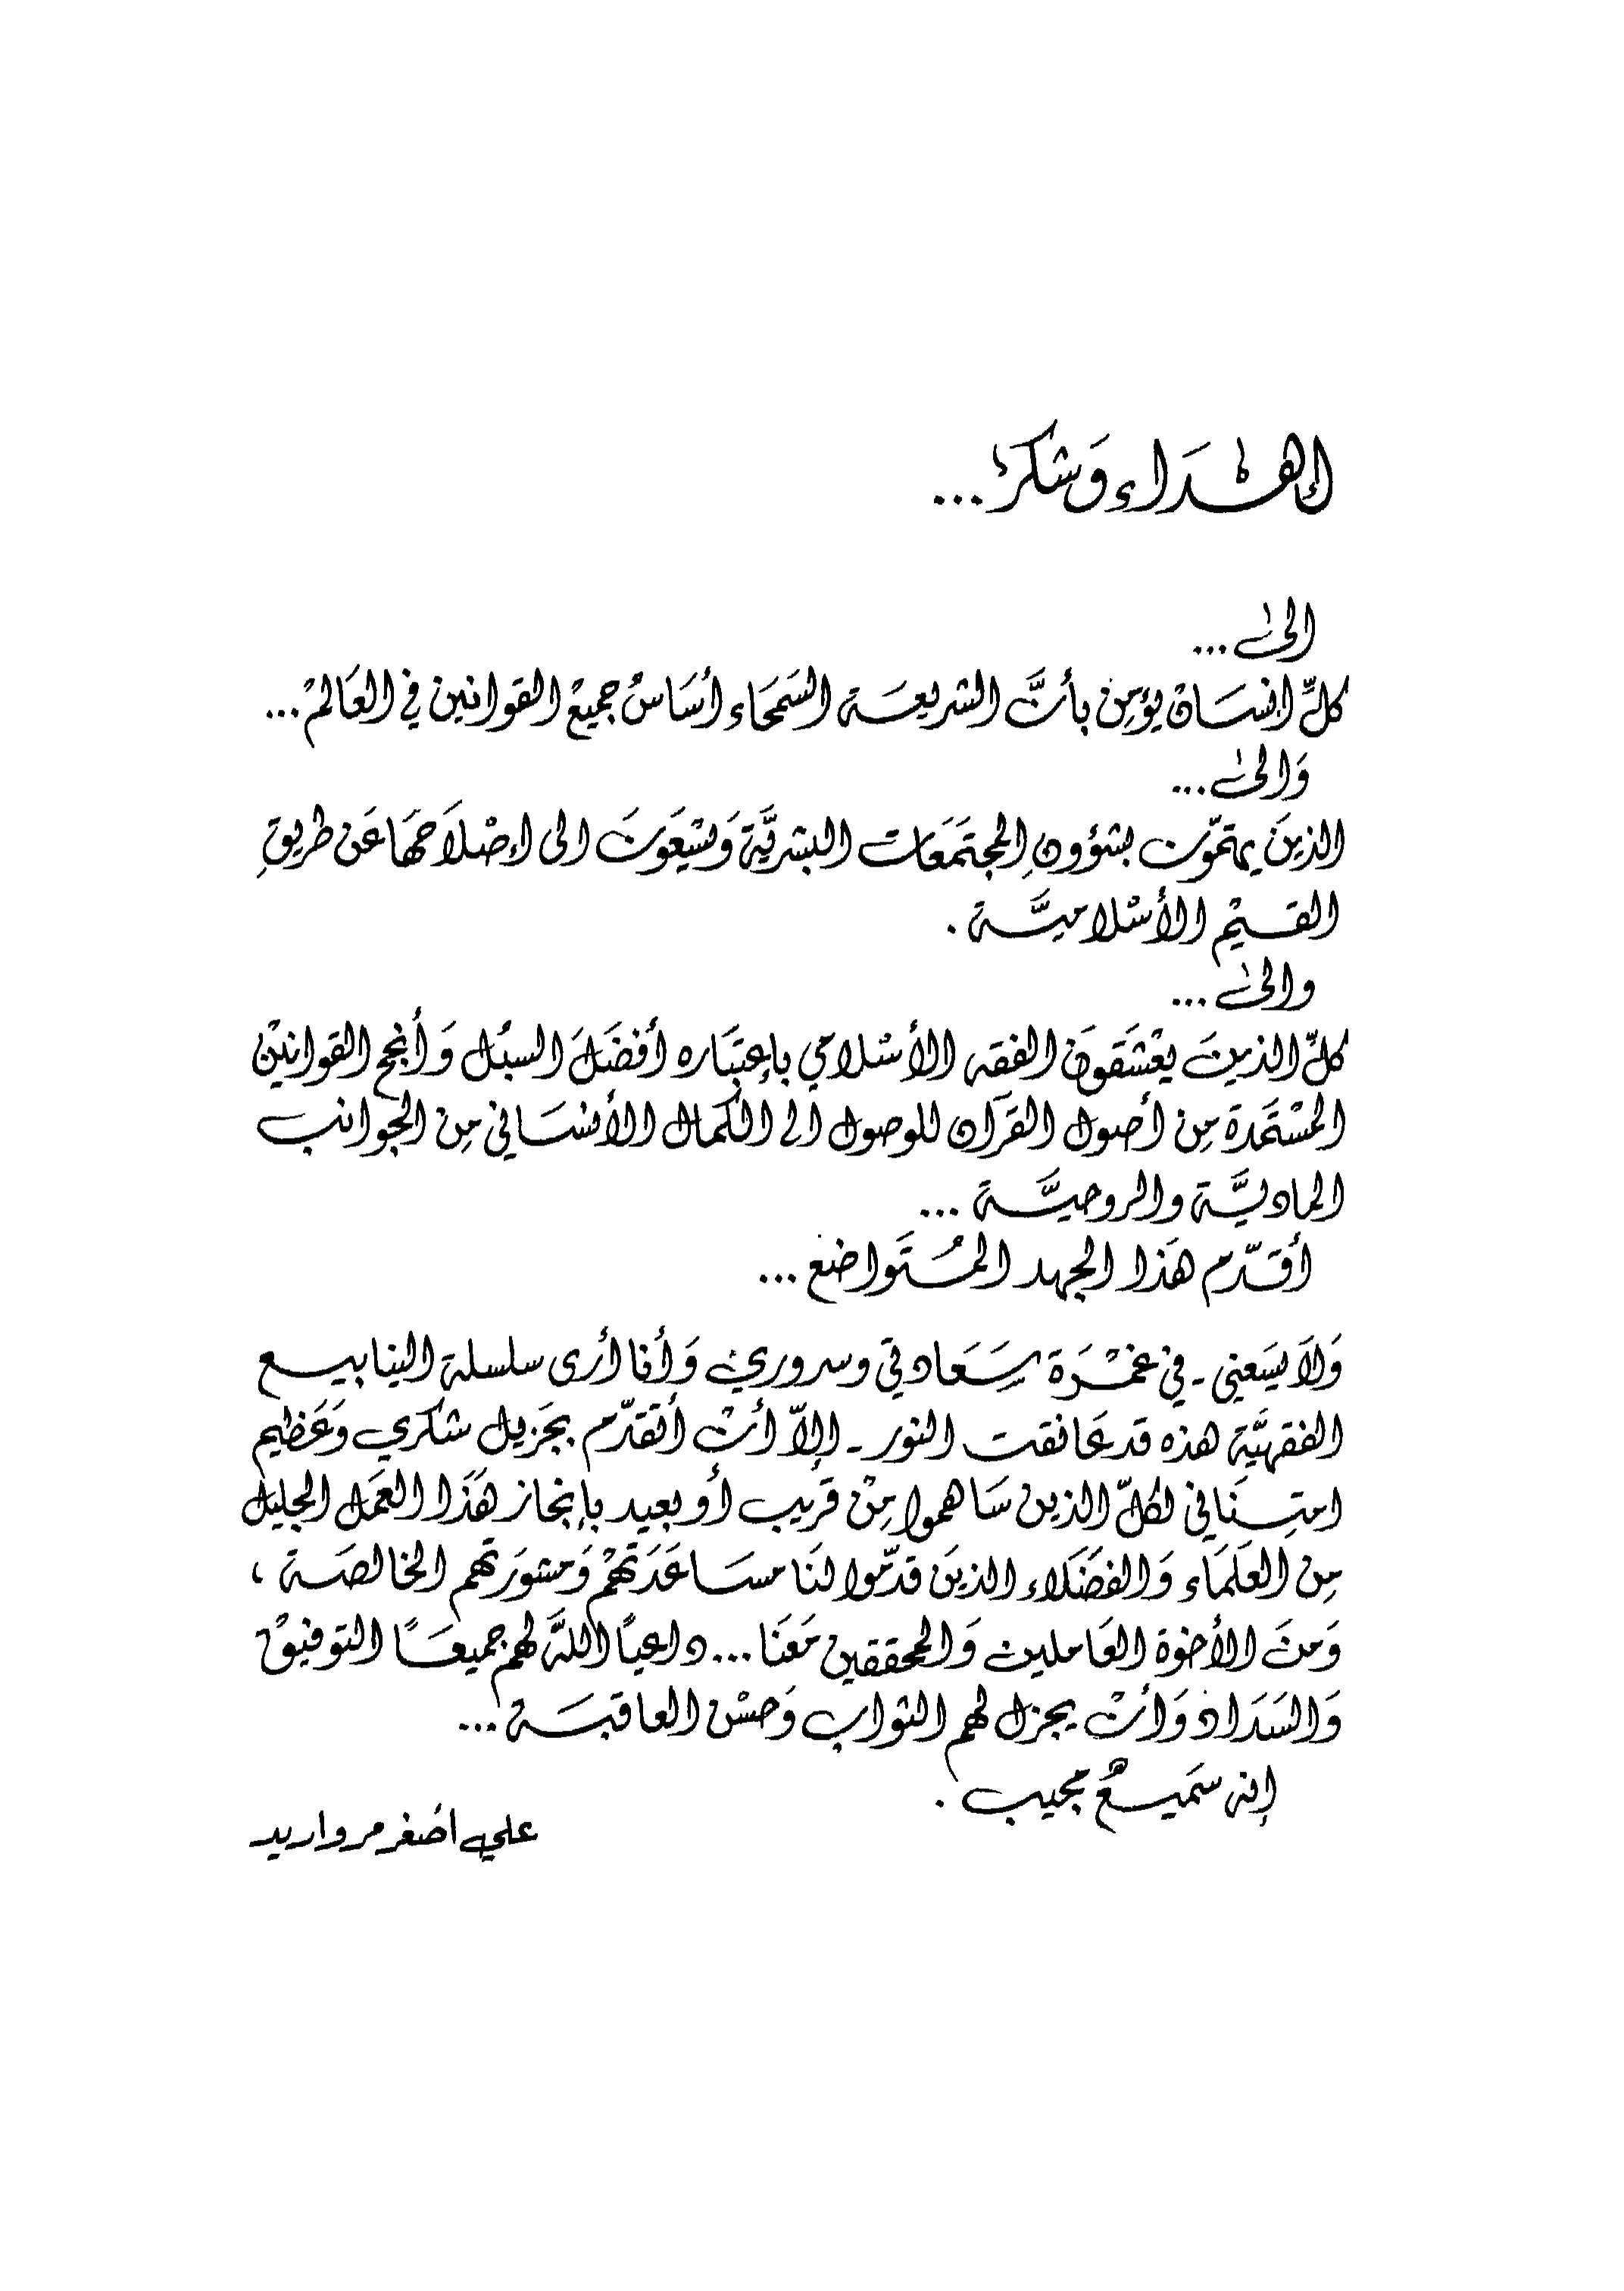 إهداء وَشكر...
الىٰ...
كلِّ انسَان يؤمِن بأنَّ الشريعَة السَمحَاء أسَاسُ جميْع القوانين في العَالمْ...
وَالىٰ...
الذينَ يهتمّون بشؤونِ المجتَمَعات البشريَّة وَيسْعَونَ الى إصْلاَحهَا عَن طريقِ
القيَمْ الأسْلاميَّة .
والىٰ...
كلِّ الذينَ يعْشَقونَ الفقه الأسْلامي بإعتبَاره أفضَلَ السبُل وَأنجح القوانيْن
المسْتَمدة مِن أصول القرآن للوصول الى الكمال الأنسَاني مِن الجوانب
الماديَّة والروحيَّة ...
أقَدّم هَذا الجهد المُتَواضع ...
وَلاَ يسَعني - في غمْرَة سَعَادتي وسروري وَأنا أرى سلسلة الينابيع
الفقهيَّة هذه قد عَانقت النور - إلاّ أنْ أتقدّم بجَزيل شكري وَعَظيم
امتِنَاني لكلّ الذين سَاهموا مِنْ قريب أو بعيد بإنجاز هَذا العَمَل الجليل
مِن العلَمَاء وَالفضَلاء الذينَ قدّموا لنَا مسَاعَدَتهْم وَمشورَتهم الخالصَة ،
وَمنَ الأخوة العَاملين وَالمحققين مَعَنا... داعياً اللهَ لهم جميعَاً التوفيق
وَالسَدَاد وَأنْ يجزل لهم الثواب وَحسْن العاقبَة...
إنه سَميعُ مجيب .
علي اصغر مرواريد